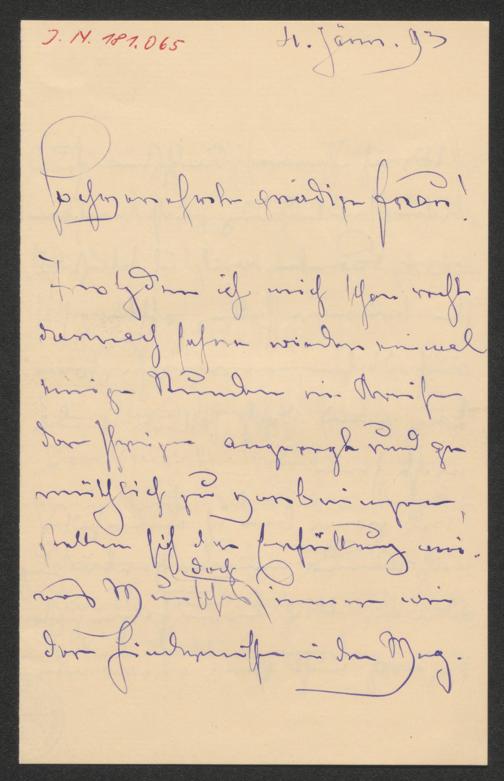 J. N. 181.065
4. Jänn. 93
Hochverehrte gnädige Frau!
Trotzdem ich mich schon recht
darnach sehne wieder einmal
einige Stunden im Kreise
der Ihrigen angeregt und ge
müthlich zu verbringen,
stellen sich der Erfüllung mei-
nes Wunsches doch immer wie
der Hindernisse in den Weg.